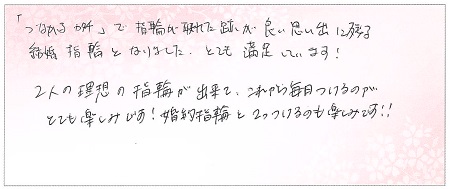 「つながるカタチ」で指輪が取れた跡が良い思い出に残る
結婚指輪となりました。とても満足しています!
2人の理想の指輪が出来て、これから毎日つけるのが
とても楽しみです!婚約指輪と2つつけるのも楽しみです!!